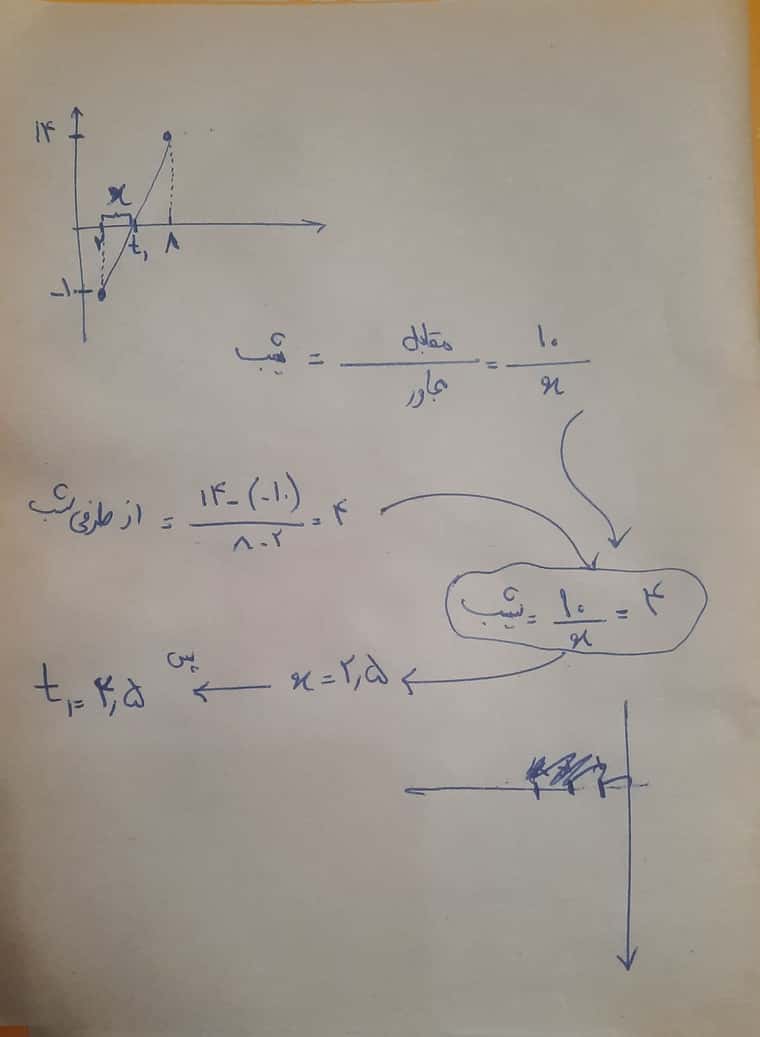 ۱۴
x
۲ t₁ ۸
-۱
شیب = مقابل / مجاور = ۱۰ / x
از طرفی شیب = ۱۴-(-۱۰) / ۸-۲ = ۴
شیب = ۱۰ / x = ۴
x = ۲,۵ پس t₁ = ۴,۵